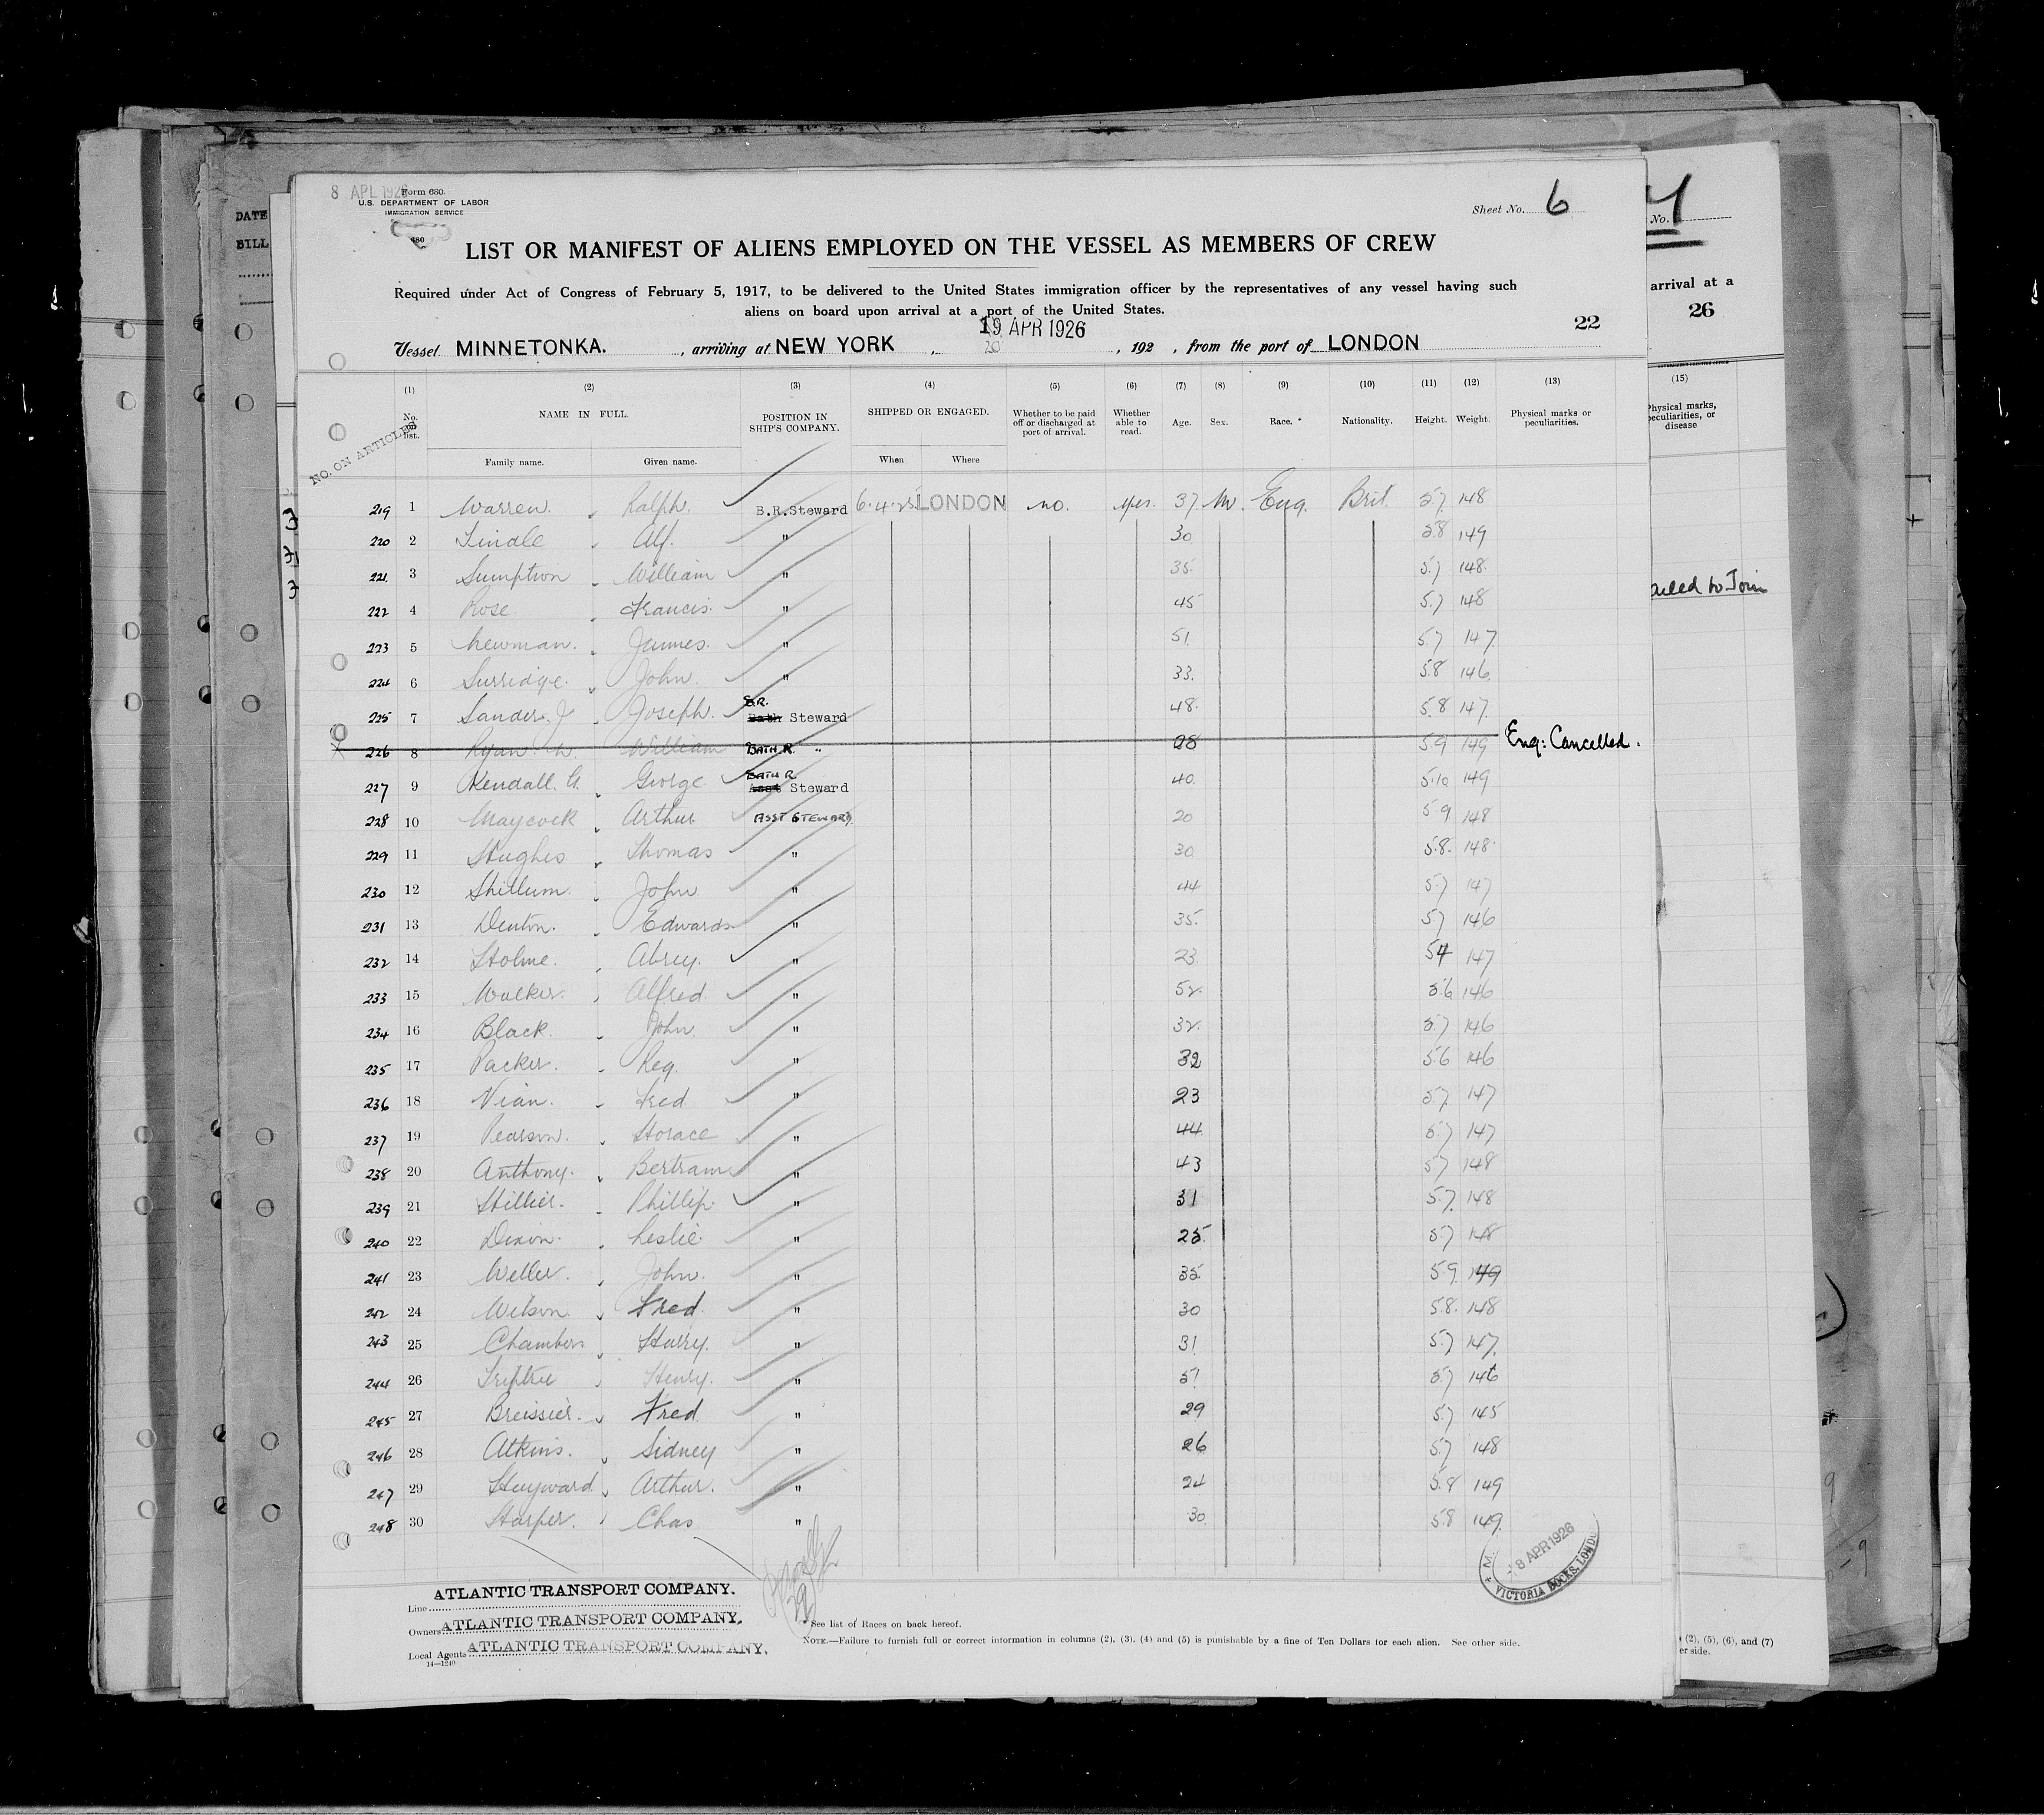 8 APL 1926
Form 680.
U.S. DEPARTMENT OF LABOR
IMMIGRATION SERVICE
680
Sheet No. 6
LIST OR MANIFEST OF ALIENS EMPLOYED ON THE VESSEL AS MEMBERS OF CREW
Required under Act of Congress of February 5, 1917, to be delivered to the United States immigration officer by the representatives of any vessel having such
aliens on board upon arrival at a port of the United States.
19 APR 1926
20
22
Vessel MINNETONKA. , arriving at NEW YORK , , 192 , from the port of LONDON
(1) (2) (3) (4) (5) (6) (7) (8) (9) (10) (11) (12) (13)
NO. ON ARTICLES
No. on list. NAME IN FULL. POSITION IN SHIP'S COMPANY. SHIPPED OR ENGAGED. Whether to be paid off or discharged at port of arrival. Whether able to read. Age. Sex. Race. * Nationality. Height. Weight. Physical marks or peculiarities.
Family name. Given name. When Where
219 1 Warren Ralph. B.R. Steward 6.4.25 LONDON no. yes. 37 M. Eng. Brit. 5.7 148
220 2 Tindle Alf. " 30 5.8 149
221 3 Sumpton William " 35 5.7 148
222 4 Rose Francis. " 45 5.7 148
223 5 Newman. James. " 51 5.7 147
224 6 Surridge. John. " 33. 5.8 146
225 7 Sander. J Joseph. B.R. Bath Steward 48. 5.8 147
226 8 Ryan W. William BATH R. " 28 5.9 149 Eng: Cancelled.
227 9 Kendall. G. George BATH R. Asst Steward 40. 5.10 149
228 10 Maycock Arthur ASST STEWARD 20 5.9 148
229 11 Hughes Thomas " 30 5.8. 148
230 12 Shillum. John " 44 5.7 147
231 13 Denton. Edwards " 35. 5.7 146
232 14 Holme. Abrey. " 23 5.4 147
233 15 Walker. Alfred " 52. 5.6 146
234 16 Black. John " 32. 5.7 146
235 17 Packer. Reg. " 32 5.6 146
236 18 Vian. Fred " 23 5.7. 147
237 19 Pearson. Horace " 44 5.7 147
238 20 Anthony. Bertram " 43 5.7 148
239 21 Hillier. Phillip. " 31 5.7. 148
240 22 Dixon. Leslie. " 25. 5.7 148
241 23 Weller. John. " 35 5.9. 149
242 24 Wilson Fred. " 30 5.8. 148
243 25 Chambers Harry. " 31 5.7 147.
244 26 Triptree Henry. " 51 5.7 146
245 27 Breissier. Fred " 29 5.7 145
246 28 Atkins. Sidney " 26 5.7 148
247 29 Hayward Arthur. " 24 5.8 149
248 30 Harper. Chas " 30. 5.8 149.
8 APR 1926
VICTORIA DOCKS. LOND
Line ATLANTIC TRANSPORT COMPANY.
Owners ATLANTIC TRANSPORT COMPANY.
Local Agents ATLANTIC TRANSPORT COMPANY.
14—1240
* See list of Races on back hereof.
NOTE.—Failure to furnish full or correct information in columns (2), (3), (4) and (5) is punishable by a fine of Ten Dollars for each alien. See other side.
DATE
BILL
No.
arrival at a
26
(15)
Physical marks, peculiarities, or disease
ailed to Join
(2), (5), (6), and (7)
er side.